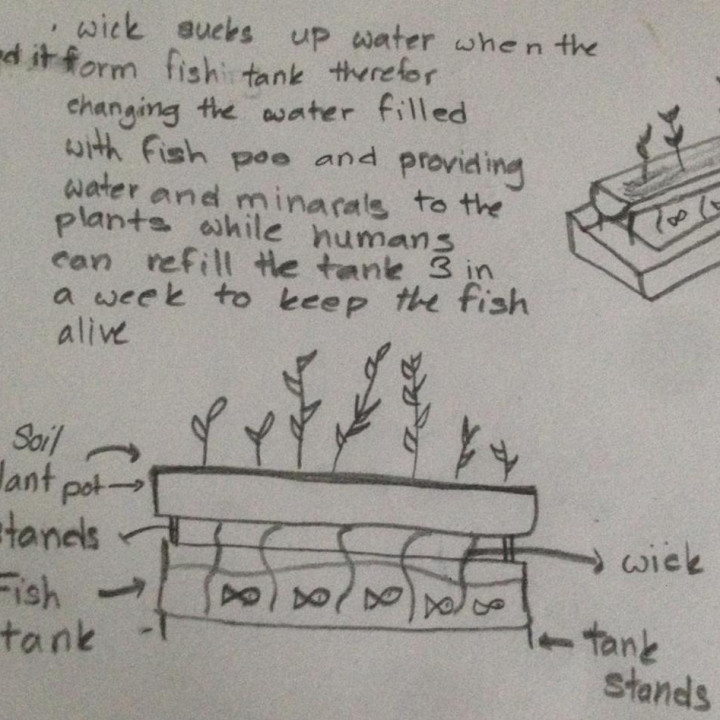 . wick sucks up water when the
it form fish tank therefor
changing the water filled
with fish poo and providing
water and minarals to the
plants while humans
can refill the tank 3 in
a week to keep the fish
alive
Soil
lant pot
tands
Fish
tank
wick
tank
stands